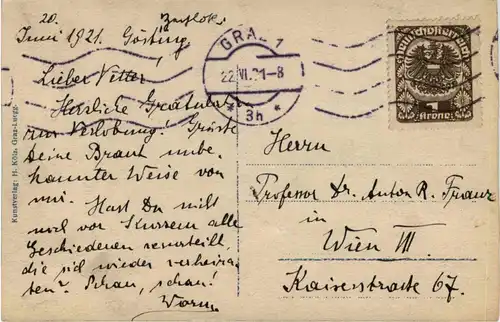 20.
Juni 1921. Gösting,
Lieber Vetter,
Herzliche Gratulation
zur Verlobung! Grüsse
Deine Braut unbe-
kannter Weise von
mir. Hast Du nicht
noch vor Kurzem alle
Geschiedenen verurteilt,
die sich wieder verheira-
ten? Schau, schau!
GRAZ 1
22.VI.21-8
* 3h *
Deutschösterreich
1
Krone
Herrn
Professor Dr. Anton R. Franz
in
Wien III.
Kaiserstrasse 67.
Kunstverlag: H. Köla, Graz-Luegg.